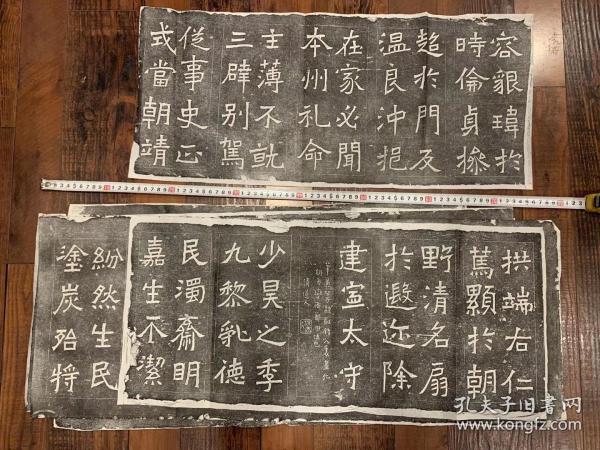 容貌瑋於
時倫貞操
超於門友
温良沖挹
在家必聞
本州礼命
主薄不就
三辟别駕
從事史正
式當朝靖
拱端右仁
篤顯於朝
野清名扇
於遐迩除
建寧太守
少昊之季
九黎乱德
民瀆齋明
嘉生不潔
紛然生民
塗炭殆將
孔夫子旧书网
www.kongfz.com